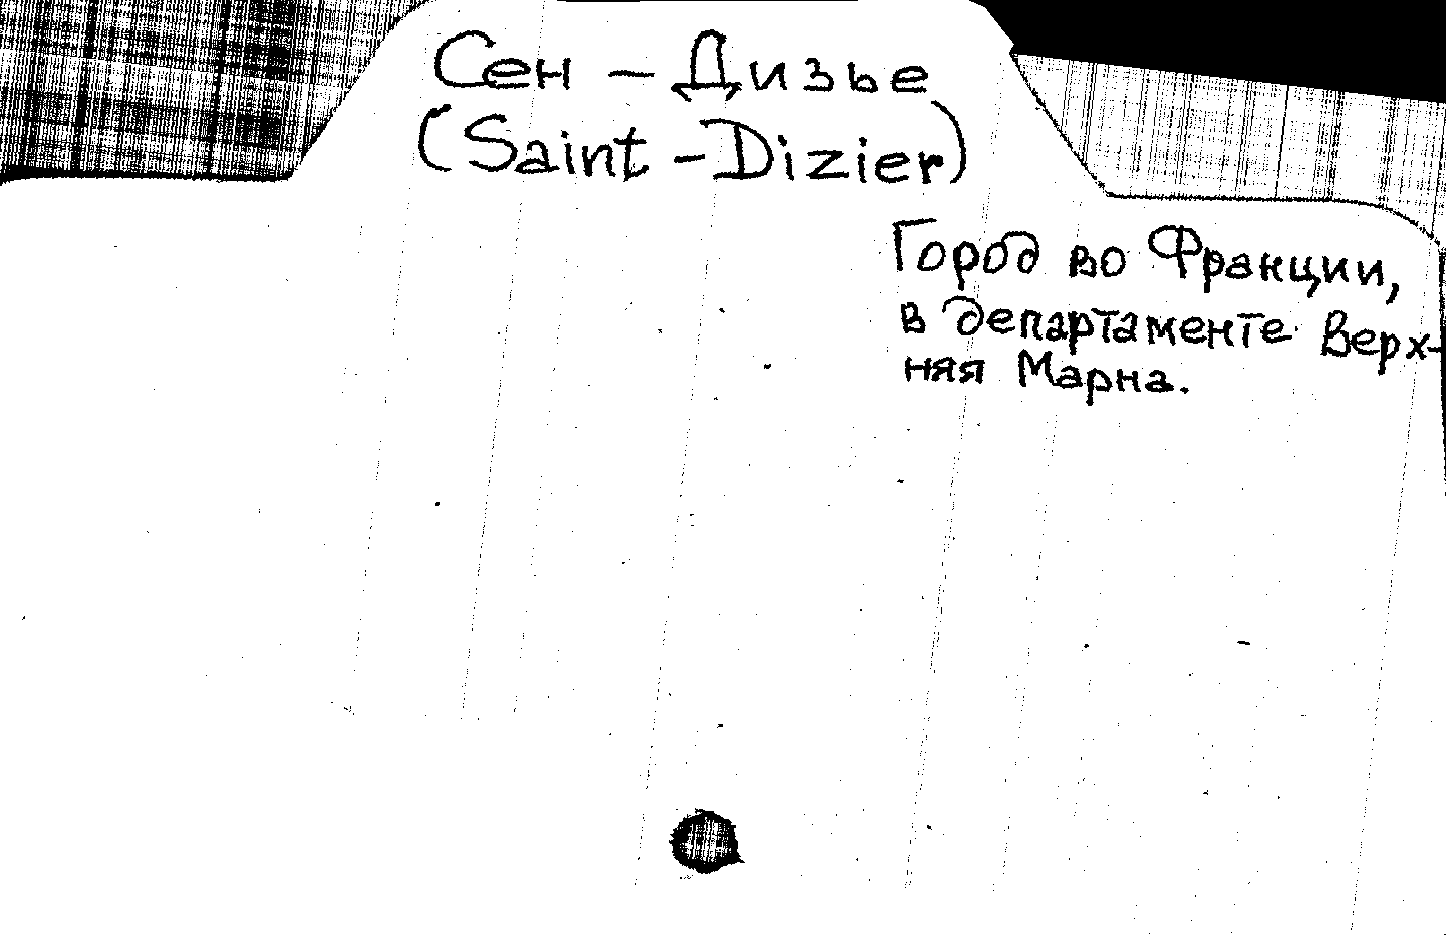 Сен - Дизье
(Saint - Dizier)
Город во Франции,
в департаменте Верх-
няя Марна.